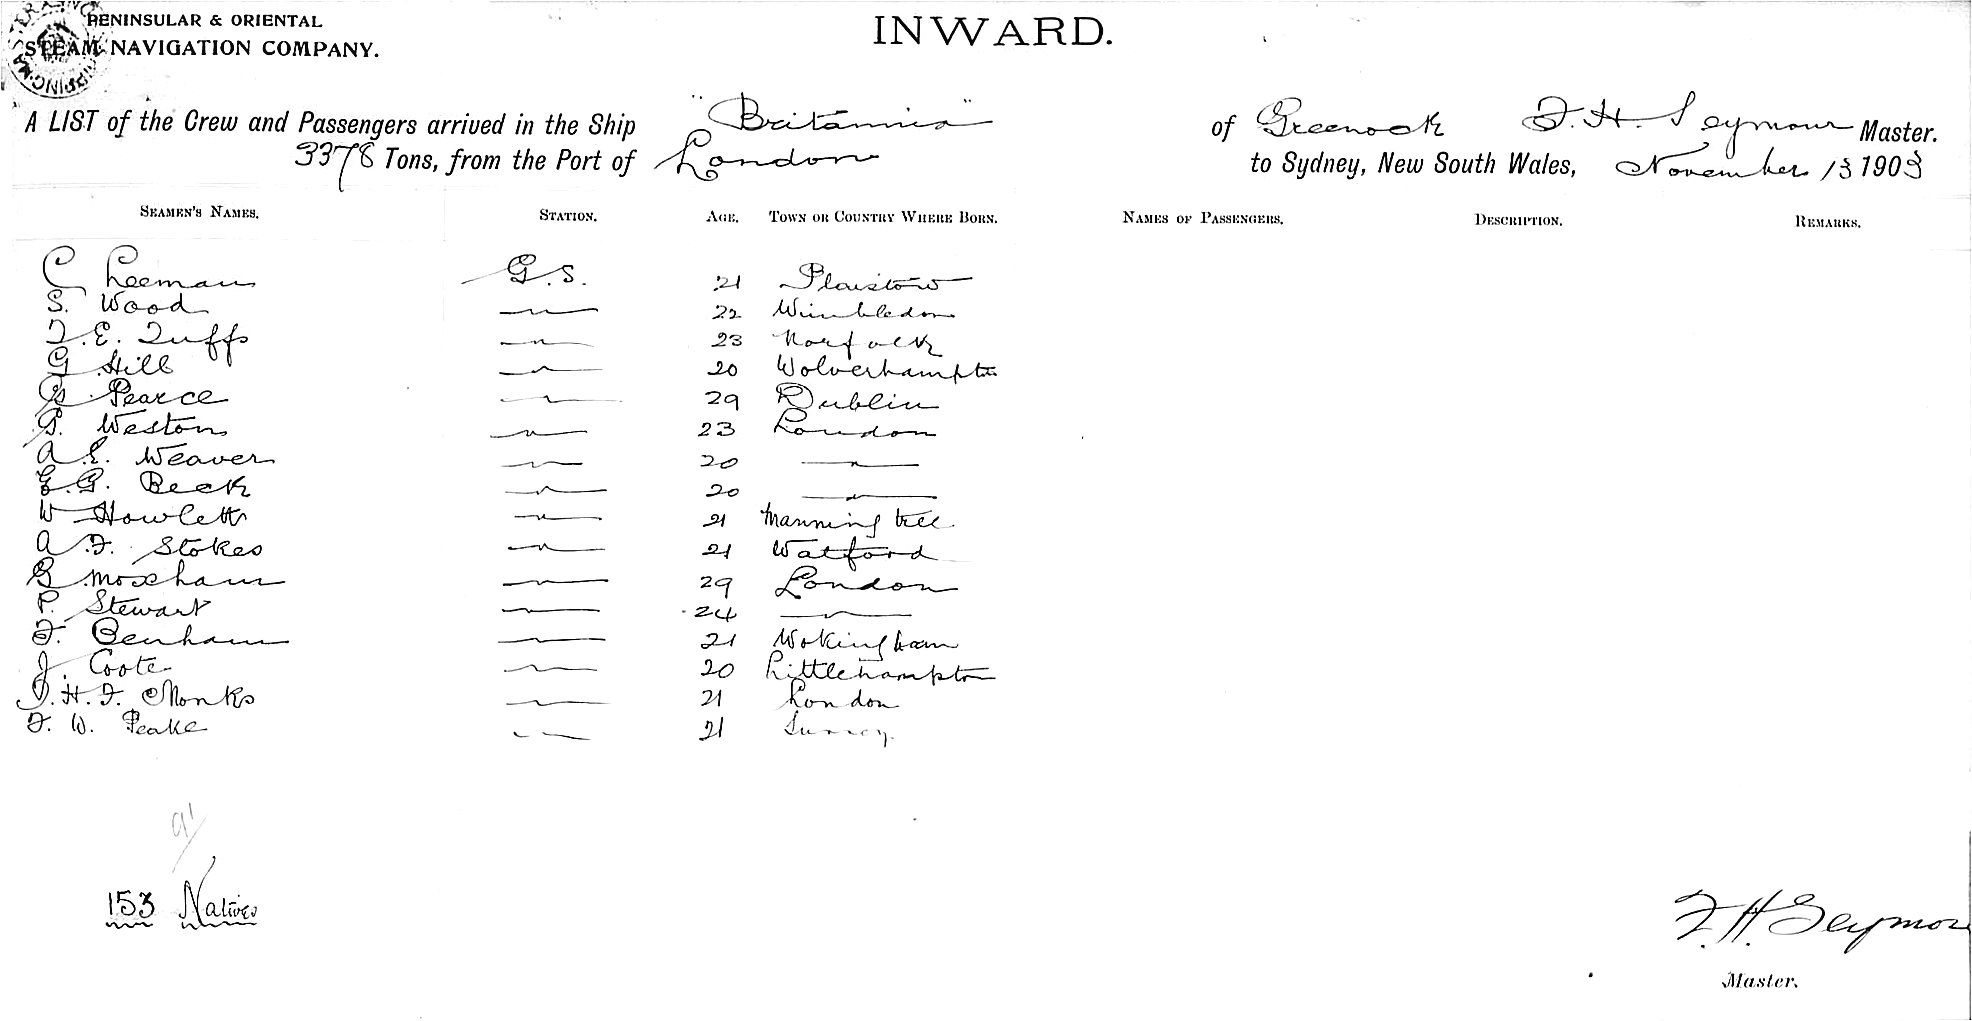 PENINSULAR & ORIENTAL
STEAM NAVIGATION COMPANY.
INWARD.
A LIST of the Crew and Passengers arrived in the Ship "Britannia" of Greenock F. H. Seymour Master.
3378 Tons, from the Port of London to Sydney, New South Wales, November 13 1903
SEAMEN'S NAMES. STATION. AGE. TOWN OR COUNTRY WHERE BORN. NAMES OF PASSENGERS. DESCRIPTION. REMARKS.
C Leeman G.S. 21 Plaistow
S. Wood " 22 Wimbledon
F. E. Tuffs " 23 Norfolk
G Hill " 20 Wolverhampton
Pearce " 29 Dublin
G. Weston " 23 London
A. E. Weaver " 20 "
E. G. Beck " 20 "
W Howlett " 21 Manningtree
A. F. Stokes " 21 Watford
G Moxham " 29 London
P. Stewart " 24 "
F. Benham " 21 Wokingham
J. Coote " 20 Littlehampton
H. F. Monks " 21 London
F. W. Peake " 21 Surrey.
91
153 Natives
F. H. Seymour
Master.